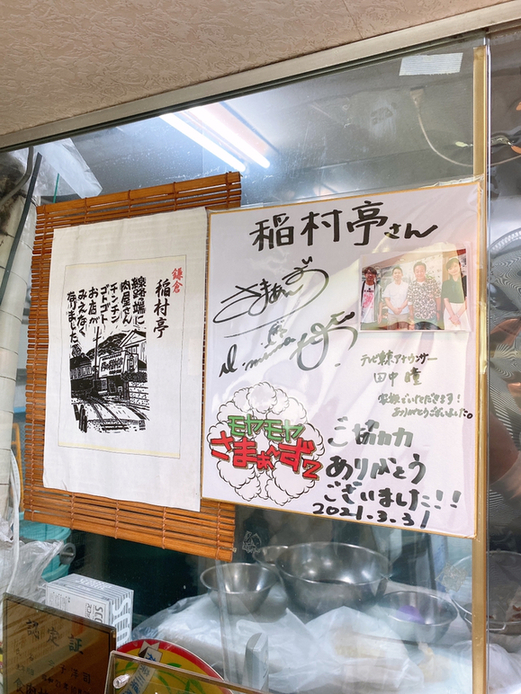 鎌倉
稲村亭
線路端に
肉屋さん
チンチン
ゴトゴト
お店が
みえなく
なりました
稲村亭さん
さまぁ〜ず
テレビ東京アナウンサー
田中瞳
ありがとうございました。
モヤモヤ
さまぁ〜ず2
ご協力
ありがとう
ございました!!
2021.3.31
認定証